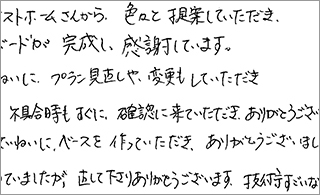 ストホームさんから、色々と提案していただき、
ードが完成し、感謝しています。
ねいに、プラン見直しや、変更もしていただき
不具合時もすぐに、確認に来ていただき、ありがとうござ
ていねいに、ベースを作っていただき、ありがとうございまし
っていましたが、直して下さりありがとうございます。